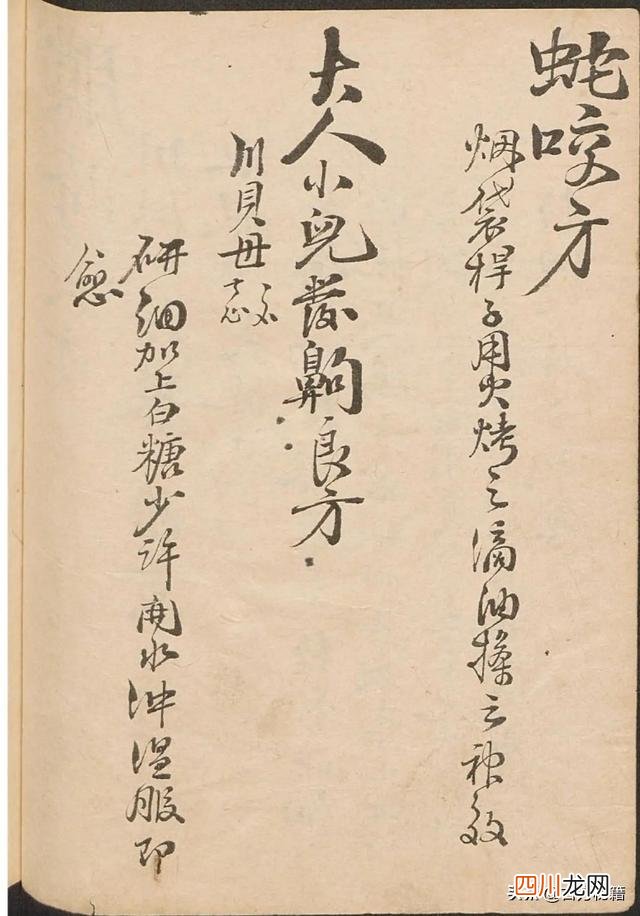 蛇咬方
烟袋桿子用火烤之滴油搽之神效
大人小兒發齁良方
川貝母
研細加上白糖少许開水沖温服即
愈
四川龙网